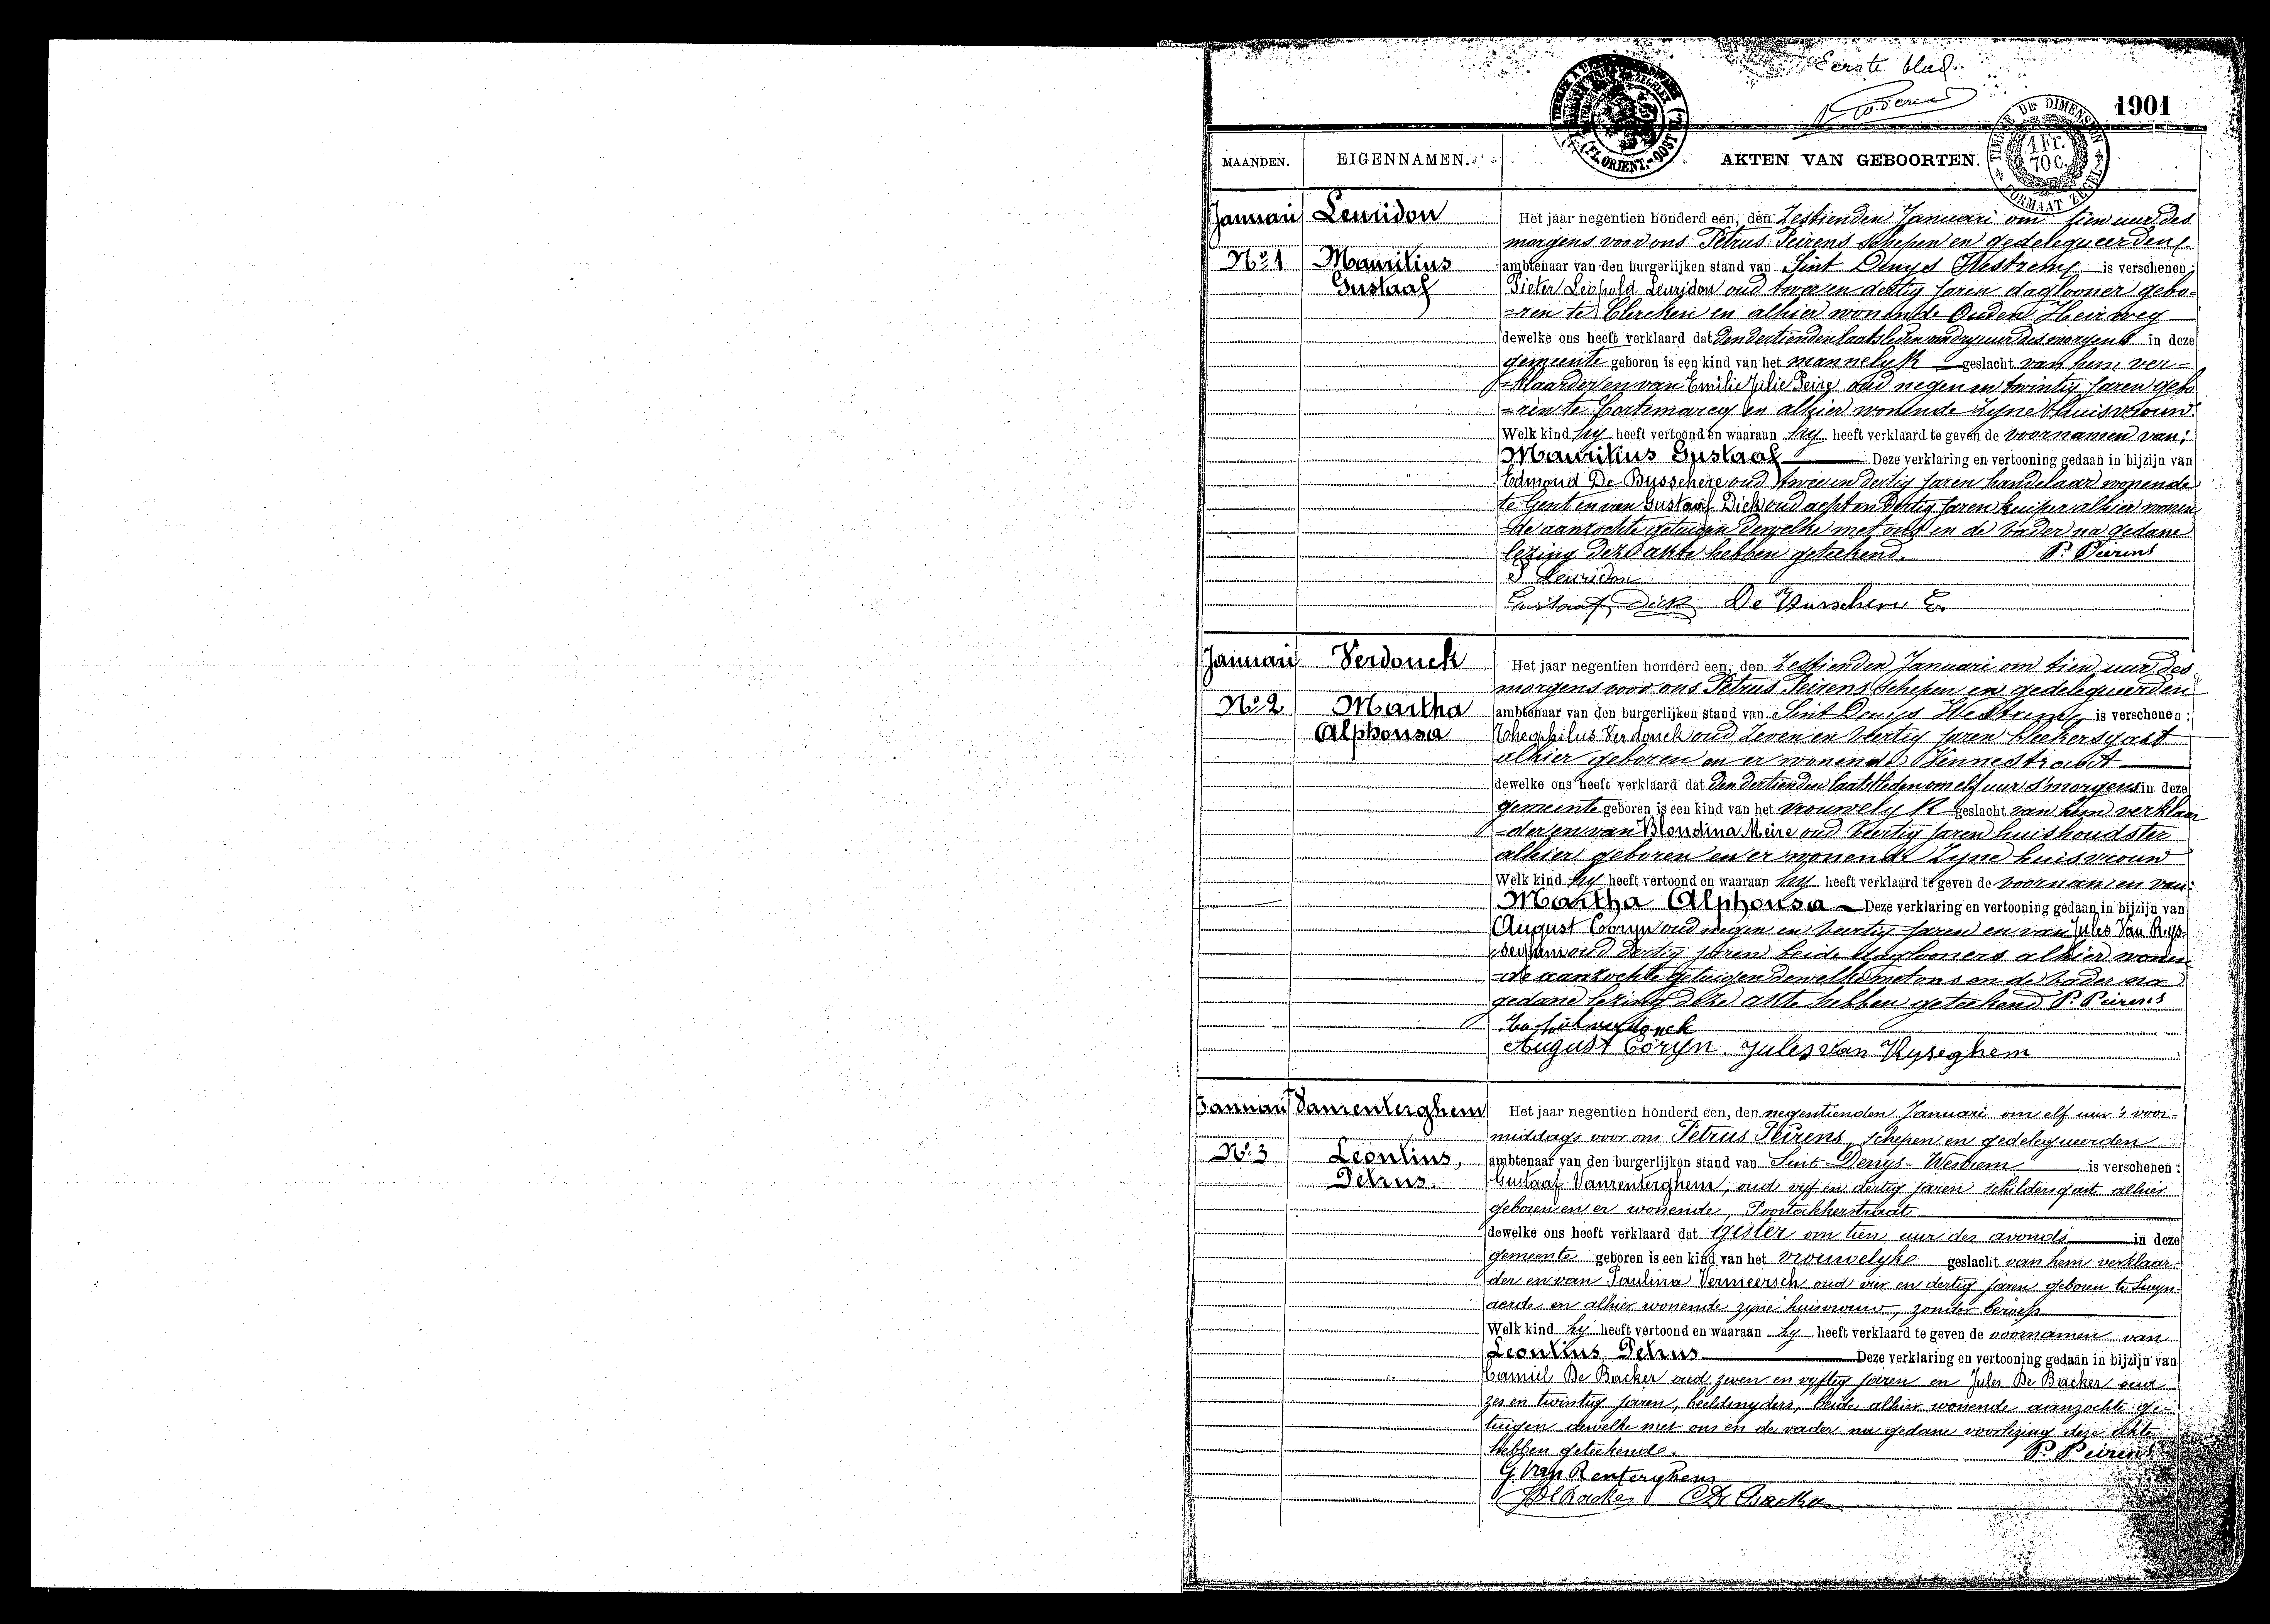 Eerste blad
1901
TIMBRE DE DIMENSION
1 Fr. 70 c.
FORMAAT ZEGEL
(FL. ORIENT.-OOST VL.)
MAANDEN. EIGENNAMEN. AKTEN VAN GEBOORTEN.
Januari
No 1
Leuridon
Mauritius
Gustaaf
Het jaar negentien honderd een, den Zestienden Januari om tien uur des
morgens voor ons Petrus Peirens schepen en gedelegueerden
ambtenaar van den burgerlijken stand van Sint Denys Westrem is verschenen:
Pieter Leopold Leuridon oud twee en dertig jaren daglooner gebo=
=ren te Clercken en alhier wonende Ouden Heirweg
dewelke ons heeft verklaard dat den dertienden laatstleden om drij uur des morgens in deze
gemeente geboren is een kind van het mannelyk geslacht van hem ver=
=klaarder en van Emilie Julie Peire oud negen en twintig jaren gebo
=ren te Cortemarcq en alhier wonende zyne huisvrouw.
Welk kind hy heeft vertoond en waaraan hy heeft verklaard te geven de voornamen van:
Mauritius Gustaaf Deze verklaring en vertooning gedaan in bijzijn van
Edmond De Busschere oud twee en dertig jaren handelaar wonende
te Gent en van Gustaaf Dick oud acht en dertig jaren kuiper alhier wonen
=de aanzochte getuigen dewelke met ons en de vader na gedane
lezing deze akte hebben geteekend. P. Peirens
P Leuridon
Gustaaf Dick De Busschere E.
Januari
No 2
Verdonck
Martha
Alphonsa
Het jaar negentien honderd een, den Zestienden Januari om tien uur des
morgens voor ons Petrus Peirens schepen en gedelegueerden
ambtenaar van den burgerlijken stand van Sint Denijs Westrem is verschenen:
Theophilus Verdonck oud Zeven en veertig jaren bleekersgast
alhier geboren en er wonende Vennestraat
dewelke ons heeft verklaard dat den dertienden laatstleden om elf uur s'morgens in deze
gemeente geboren is een kind van het vrouwelyk geslacht van hem verklaar
=der en van Blondina Meire oud veertig jaren huishoudster
alhier geboren en er wonende Zyne huisvrouw
Welk kind hy heeft vertoond en waaraan hy heeft verklaard te geven de voornamen van:
Martha Alphonsa Deze verklaring en vertooning gedaan in bijzijn van
August Coryn oud negen en veertig jaren en van Jules Van Rys=
seghem oud dertig jaren beide dagloners alhier wonen
=de aanzochte getuigen dewelke met ons en de vader na
gedane lezing deze akte hebben geteekend P. Peirens
verdonck
August Coryn. Jules van Ryseghem
Januari
No 3
Vanrenterghem
Leontius,
Petrus.
Het jaar negentien honderd een, den negentienden Januari om elf uur 's voor-
middags voor ons Petrus Peirens, schepen en gedelegueerden
ambtenaar van den burgerlijken stand van Sint-Denys-Westrem is verschenen:
Gustaaf Vanrenterghem, oud vyf en dertig jaren schildersgast alhier
geboren en er wonende, Poortakkerstraat
dewelke ons heeft verklaard dat gister om tien uur des avonds in deze
gemeente geboren is een kind van het vrouwelyke geslacht van hem verklaar-
der en van Paulina Vermeersch oud vier en dertig jaren geboren te Swyn-
aerde en alhier wonende zyne huisvrouw, zonder beroep
Welk kind hij heeft vertoond en waaraan hy heeft verklaard te geven de voornamen van
Leontius Petrus Deze verklaring en vertooning gedaan in bijzijn van
Camiel De Backer oud zeven en vyftig jaren en Jules De Backer oud
zes en twintig jaren, beeldsnyders, beide alhier wonende aanzochte ge-
tuigen dewelke met ons en de vader na gedane voorlezing deze akte
hebben geteekend. P. Peirens
G. Van Renterghem
J De Backer C De Backer